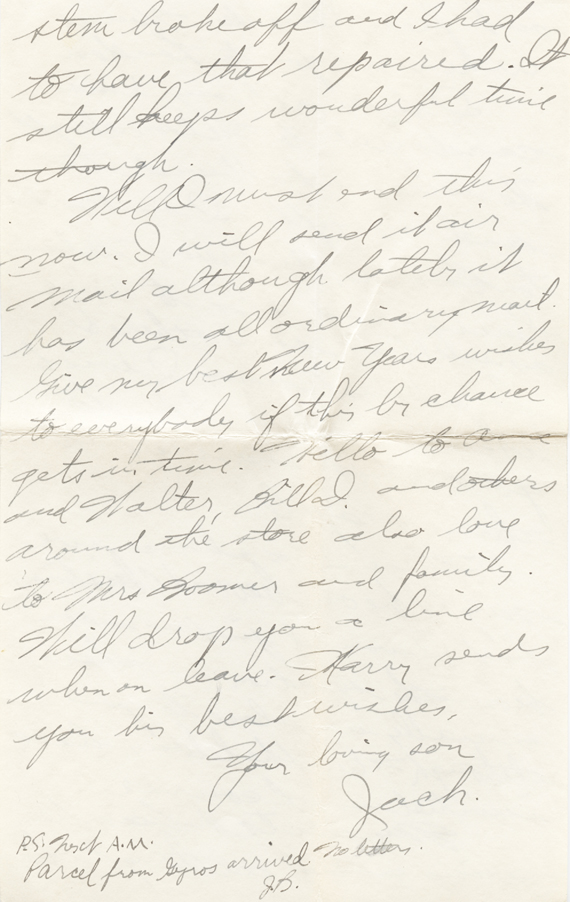 stem broke off and I had
to have that repaired. It
still keeps wonderful time
though.
Well I must end this
now. I will send it air
mail although lately it
has been all ordinary mail.
Give my best New Years wishes
to everybody if this by chance
gets in time. Hello to
and Walter, Bill D. and others
around the store also love
to Mrs Boomer and family.
Will drop you a line
when on leave. Harry sends
you his best wishes,
Your loving son
Jack.
P.S. Next A.M.
Parcel from Gyros arrived No letters.
J.B.